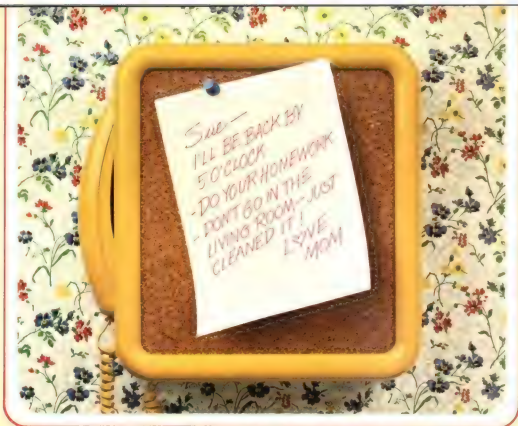 Sue—
I'LL BE BACK BY
5 O'CLOCK
-DO YOUR HOMEWORK
- DON'T GO IN THE
LIVING ROOM-JUST
CLEANED IT!
LOVE
MOM